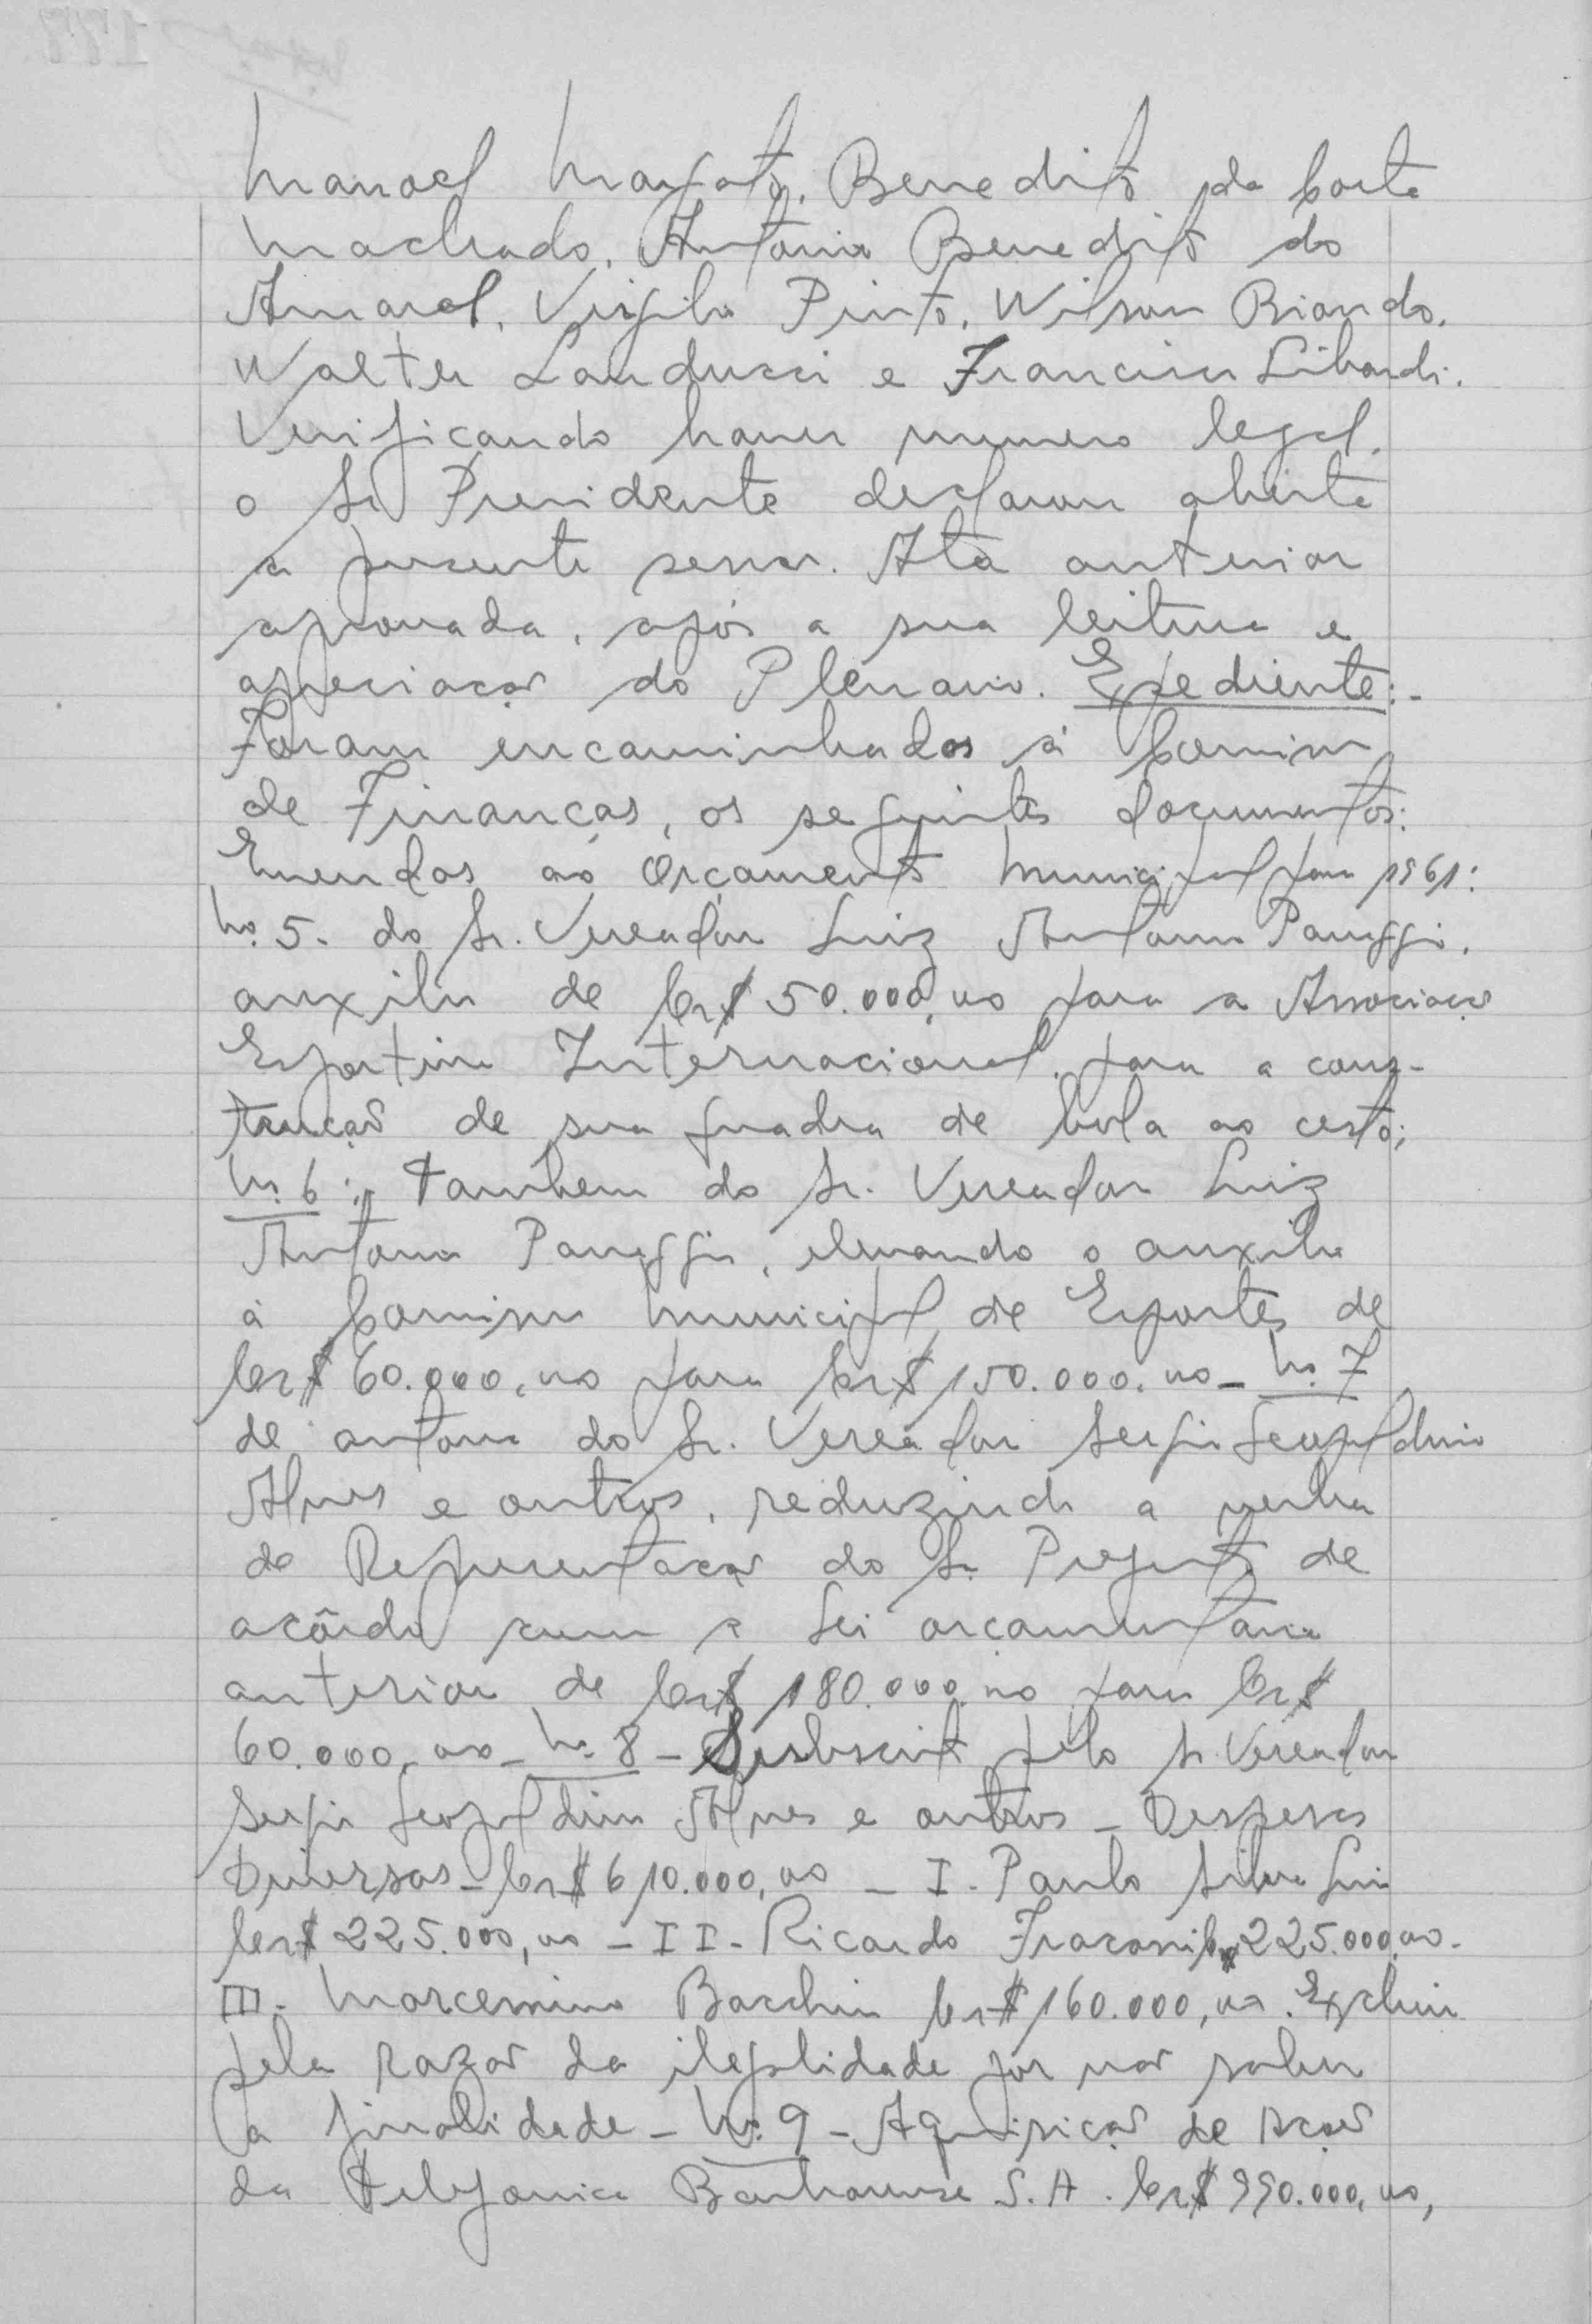 Manoel Morato, Benedito da Costa
Machado, Antonio Benedito do
Amaral, Virgilio Pinto, Wilson Biondo,
Walter Landucci e Francisco Libardi.
Verificando haver numero legal,
o Sr Presidente declarou aberta
a presente sessão. Ata anterior
aprovada, após a sua leitura e
apreciação do Plenario. Expediente:-
Foram encaminhados à Comissão
de Finanças, os seguintes documentos:
Emendas ao Orçamento Municipal para 1961:
No. 5- do Sr. Vereador Luiz Antonio
auxilio de Cr$ 50.000,00 para a Associação
Esportiva Internacional, para a cons-
trução de sua quadra de bola ao cesto;
No. 6: Tambem do Sr. Vereador Luiz
Antonio, elevando o auxilio
à Comissão Municipal de Esportes de
Cr$ 60.000,00 para Cr$ 150.000,00 - No. 7
de autoria do Sr. Vereador Sergio Leopoldino
Alves e outros, reduzindo a verba
de Representação do Sr. Prefeito de
acôrdo com a Lei orçamentaria
anterior de Cr$ 180.000,00 para Cr$
60.000,00 - No. 8 - Subscrito pelo Sr. Vereador
Sergio Leopoldino Alves e outros - Despesas
Diversas - Cr$ 610.000,00 - I- Paulo Silva
Cr$ 225.000,00 - II- Ricardo 225.000,00-
III- Cr$ 160.000,00.
pela razão da ilegalidade por não saber
a finalidade - No. 9 - Aquisição de Ação
da Telefonica S.A. Cr$ 990.000,00,